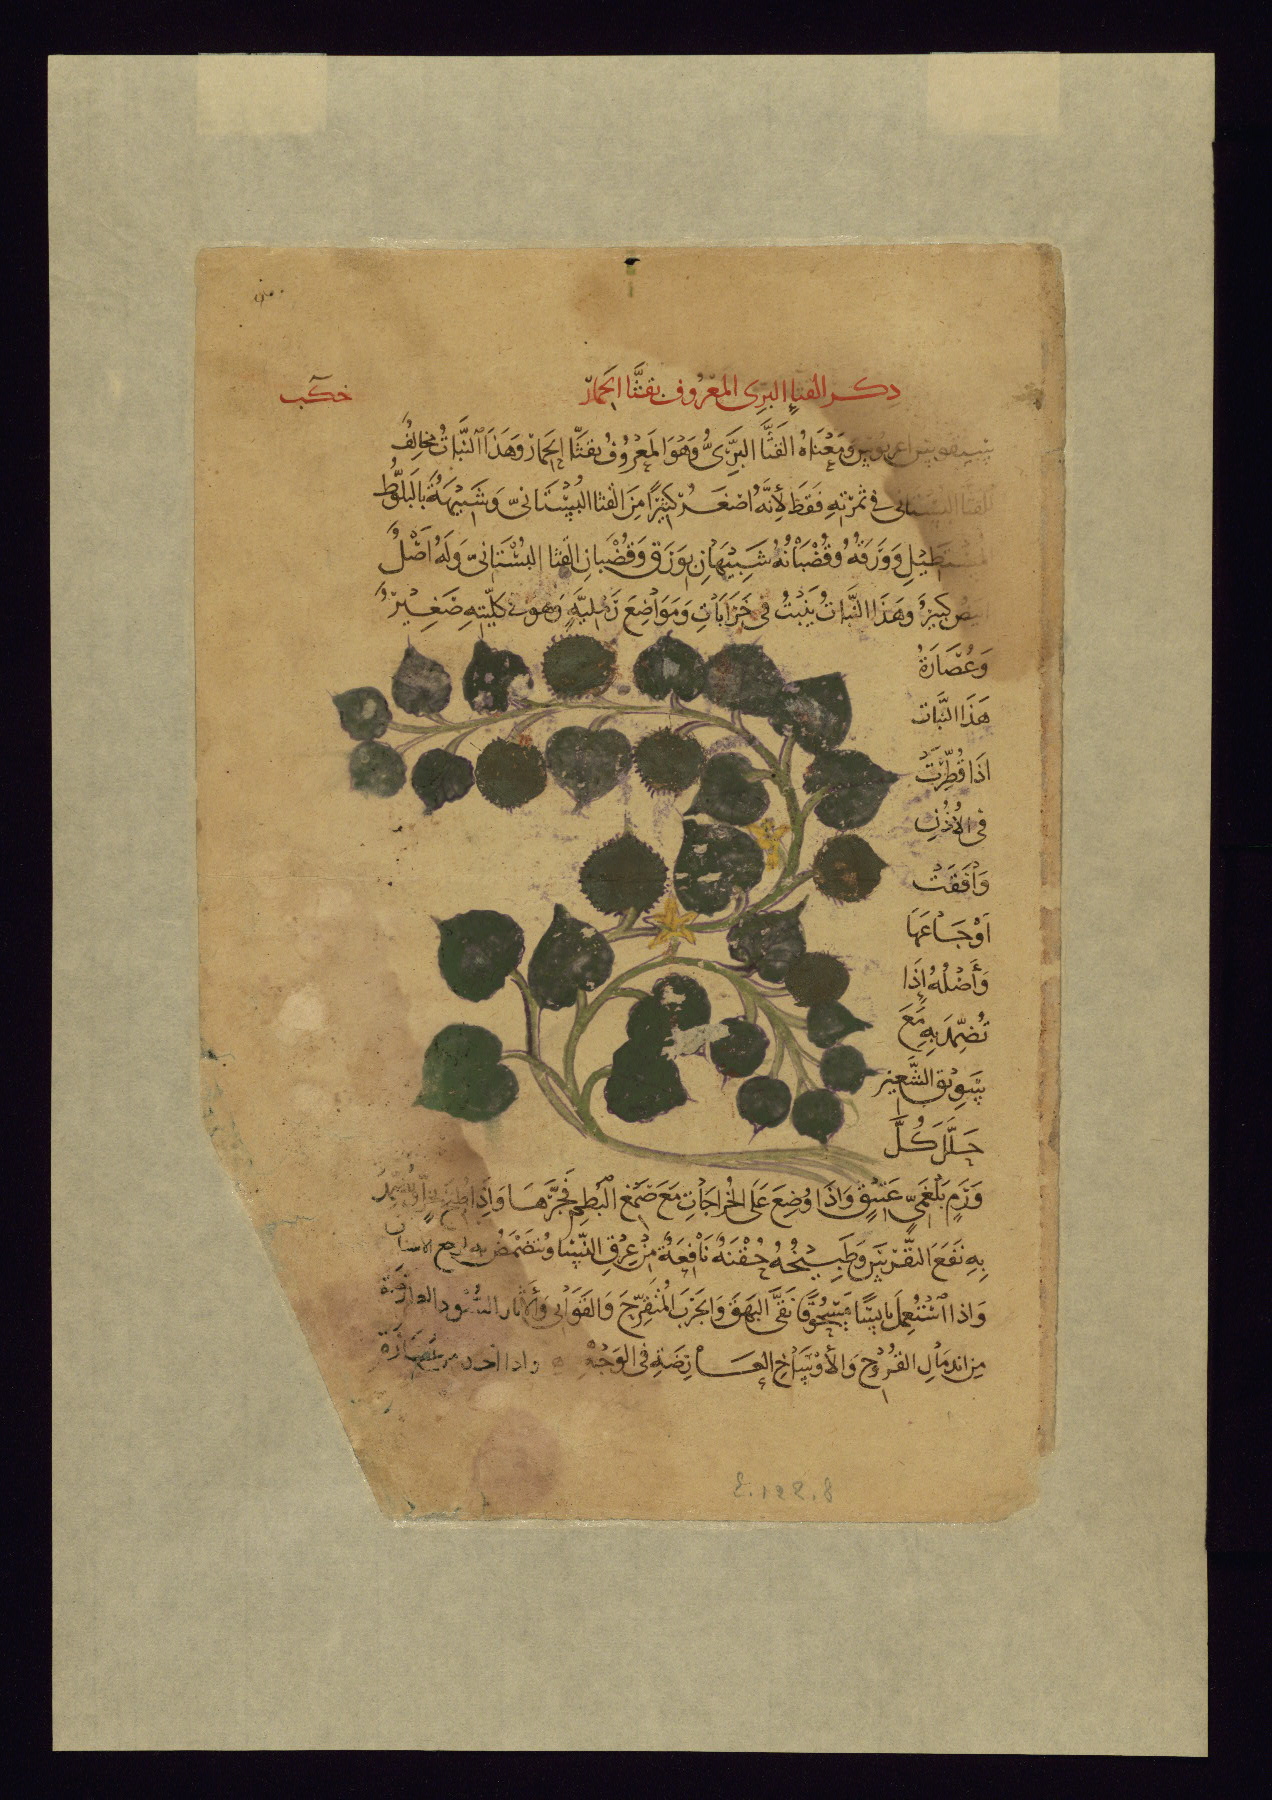 ذكر القثاء البري المعروف بقثا الحمار
خكب
سيقوس اغريوس ومعناه القثا البري وهو المعروف بقثا الحمار وهذا النبات مخالف
للقثا البستاني في ثمرته فقط لأنه اصغر كثيرا من القثا البستاني وشبيهة بالبلوط
المستطيل وورقه وقضبانه شبيهان بورق وقضبان القثا البستاني وله اصل
ابيض كبير وهذا النبات ينبت في خرابات ومواضع زملية وهو في كليته صغير
وعصارة
هذا النبات
اذا قطرت
في الأذن
وافقت
اوجاعها
وأصله إذا
تضمد به مع
سويق الشعير
حلل كل
ورم بلغمي عتيق واذا وضع على الخراجات مع صمغ البطم فجرها واذا طبخ بخل وتضمد
به نفع النقرس وطبيخه حقنة نافعة من عرق النسا ويتمضمض به لوجع الاسنان
واذا استعمل يابسا مسحوقا نقى البهق والجرب المتقرح والقوابي والآثار السود العارضة
من اندمال القروح والأوساخ العارضة في الوجه واذا اخذ من عصارة